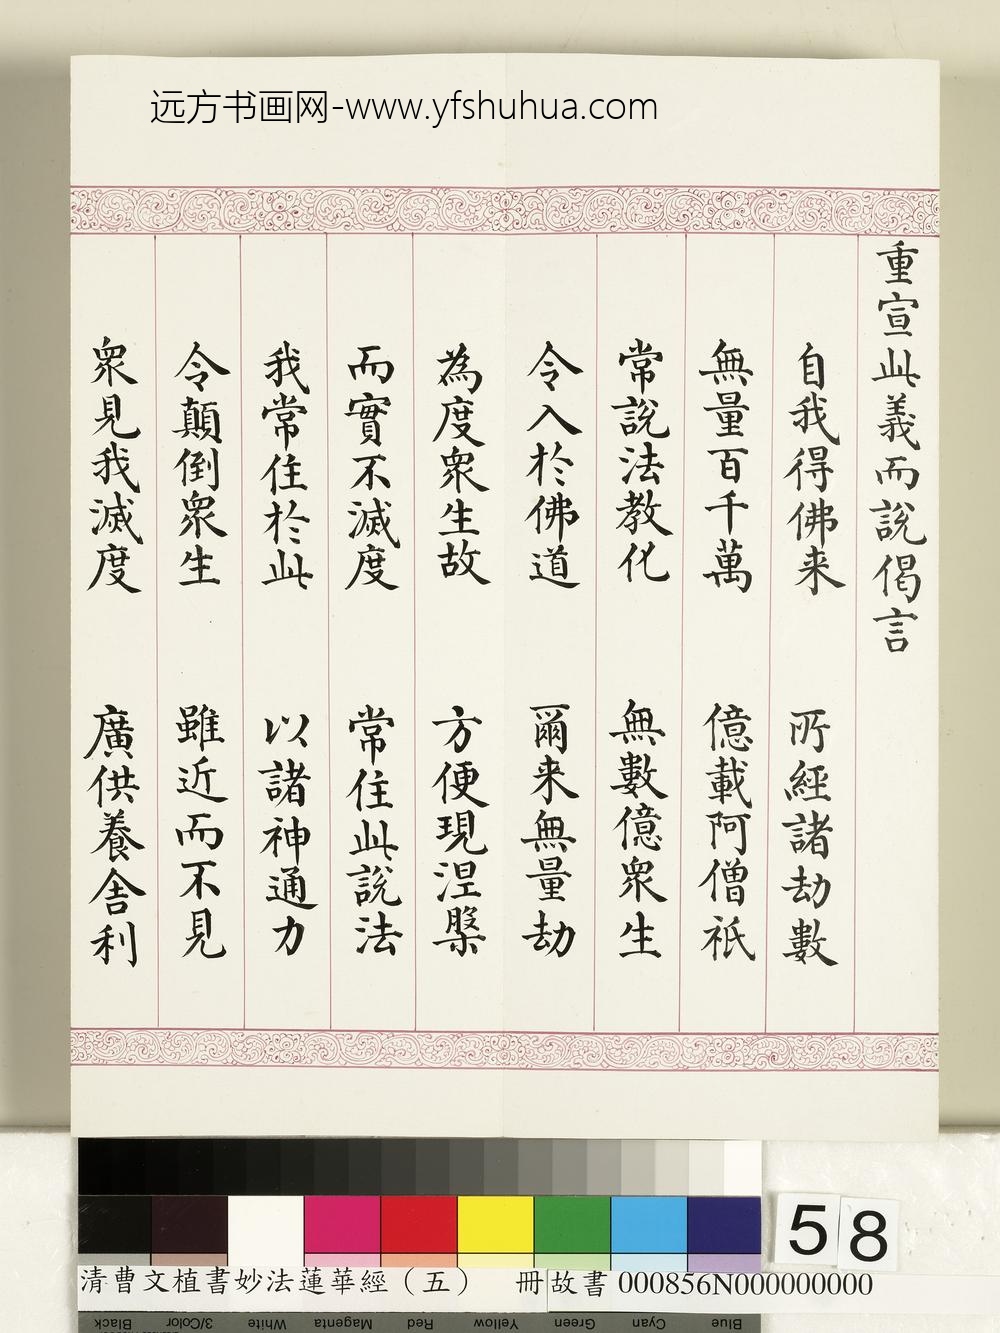 远方书画网-www.yfshuhua.com
重宣此義而說偈言
自我得佛来 所經諸劫數
無量百千萬 億載阿僧祇
常說法教化 無數億眾生
令入於佛道 爾来無量劫
為度眾生故 方便現涅槃
而實不滅度 常住此說法
我常住於此 以諸神通力
令顛倒眾生 雖近而不見
眾見我滅度 廣供養舍利
58
清曹文植書妙法蓮華經（五） 冊 故書 000856N000000000
Black 3/Color White Magenta Red Yellow Green Cyan Blue